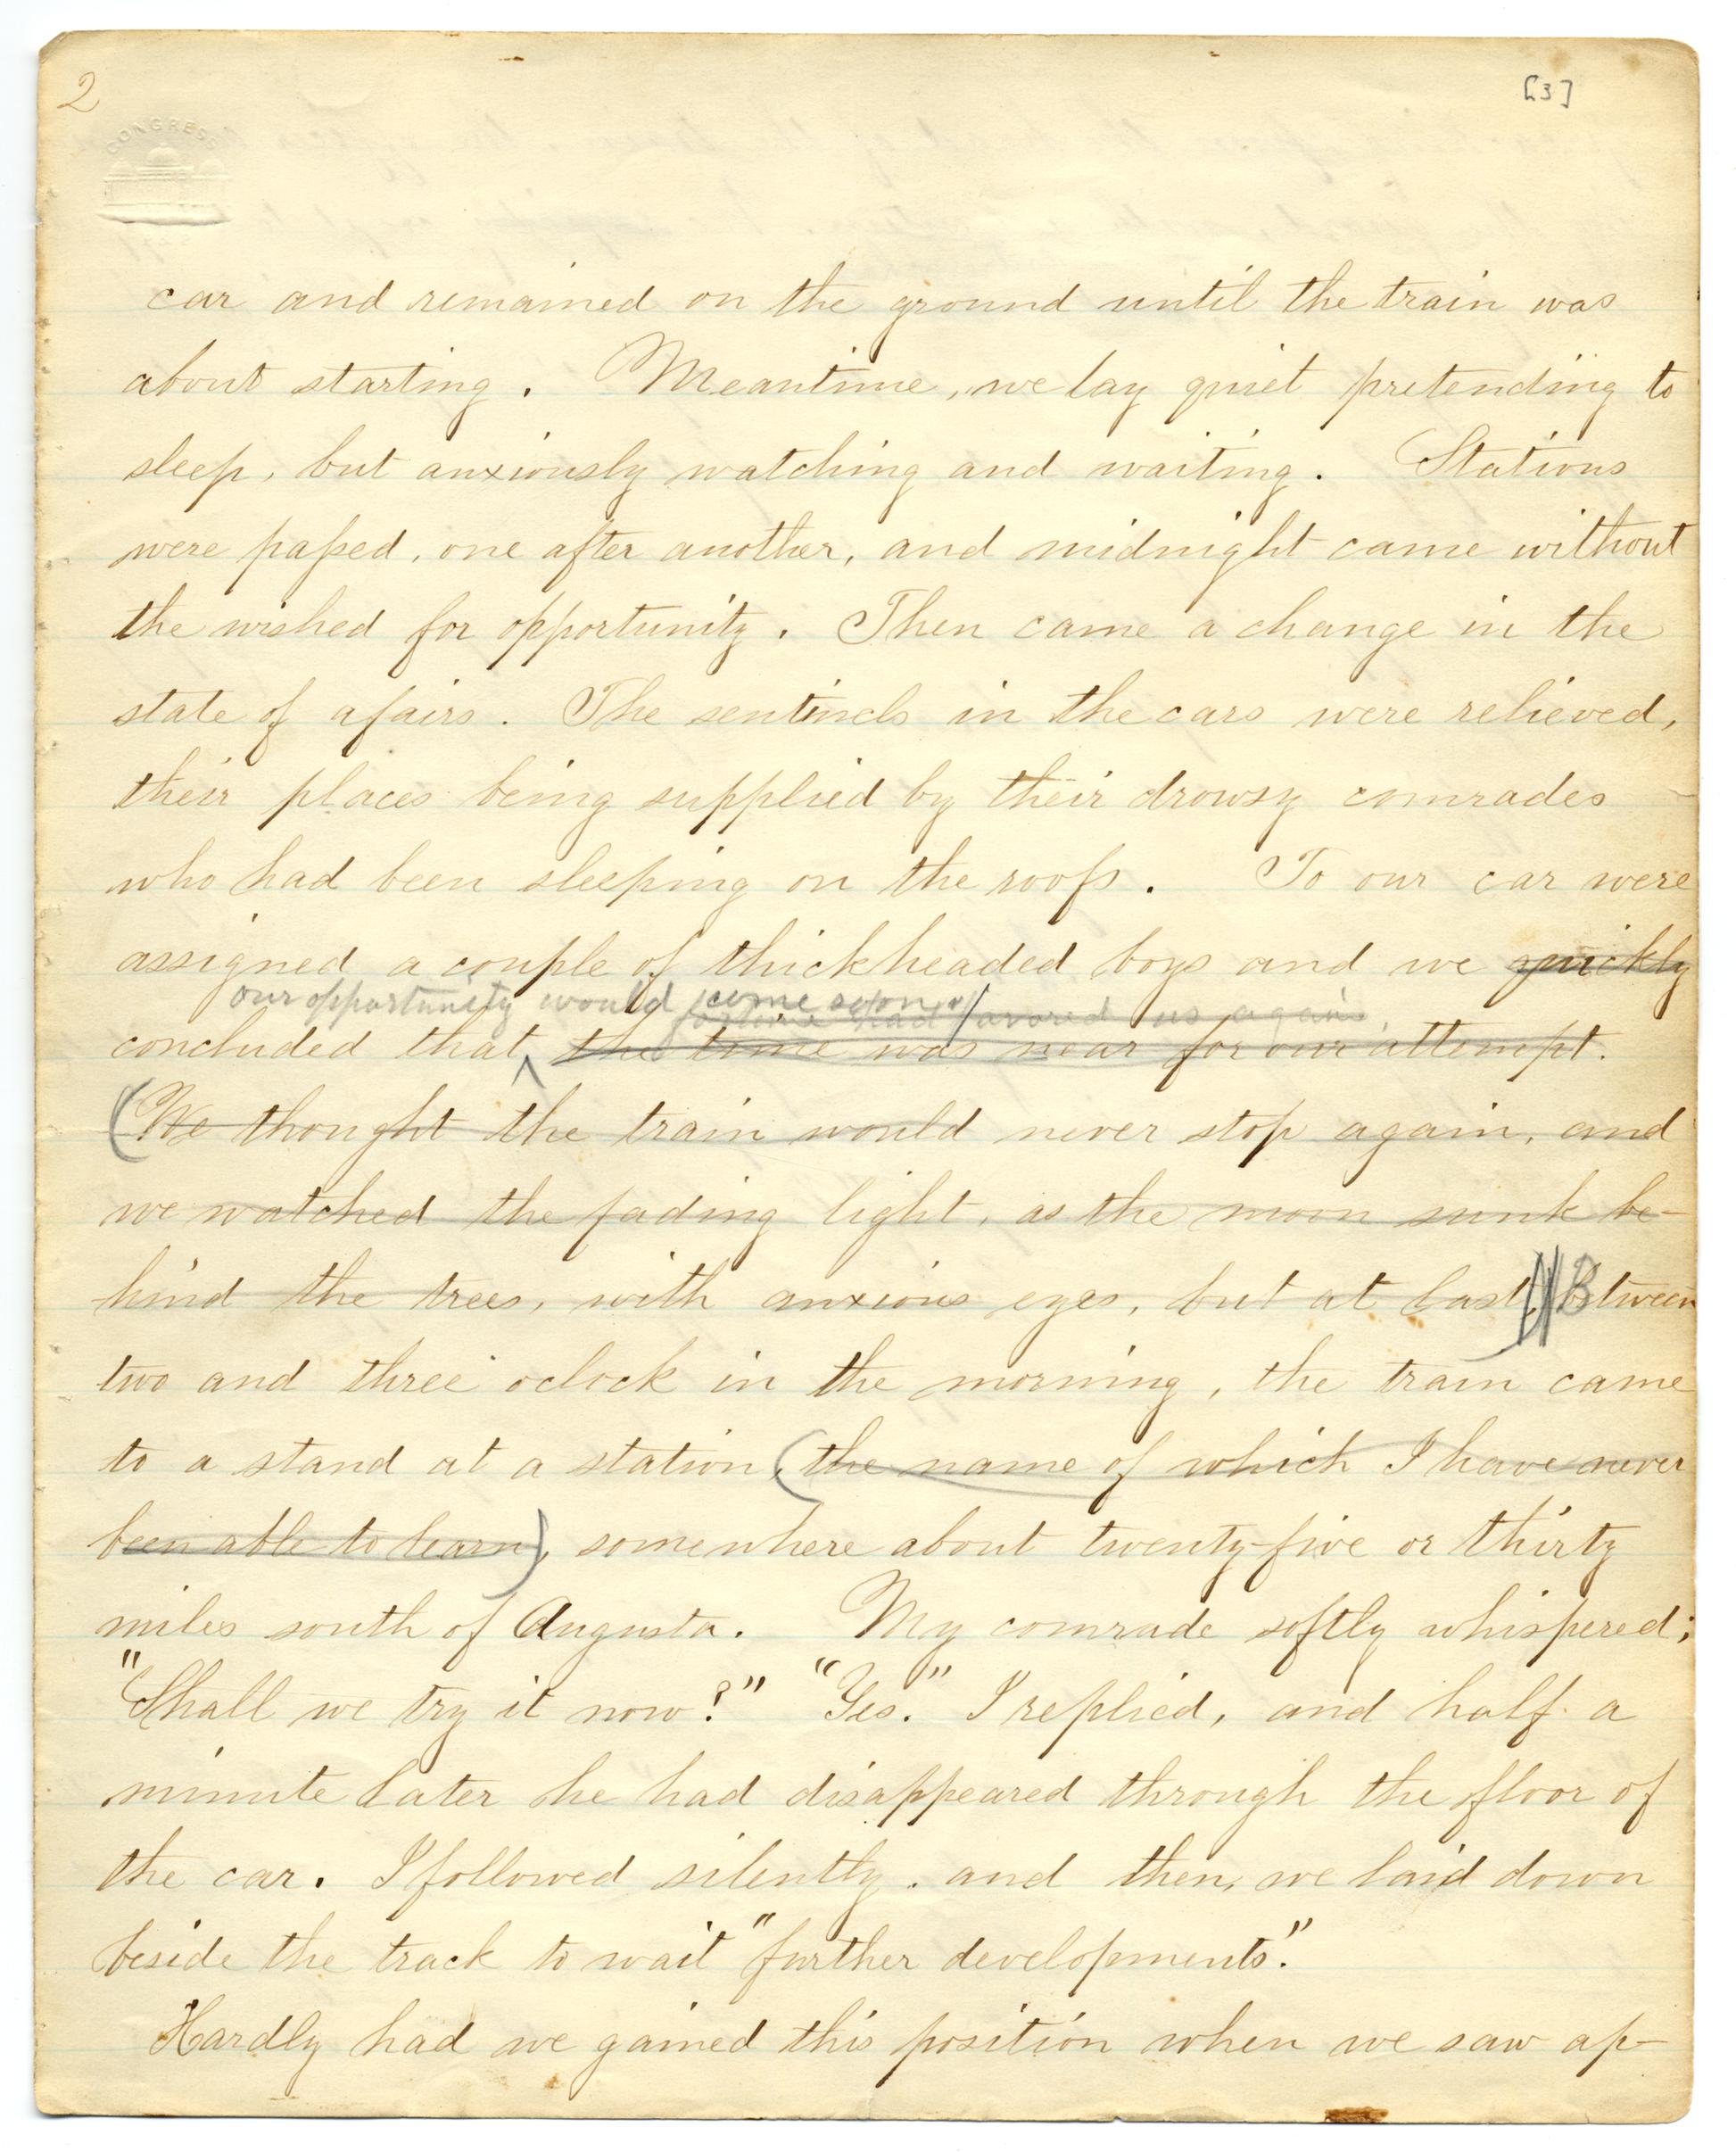 2
[3]
CONGRESS
car and remained on the ground until the train was
about starting. Meantime, we lay quiet pretending to
sleep, but anxiously watching and waiting. Stations
were paſsed, one after another, and midnight came without
the wished for opportunity. Then came a change in the
state of afairs. The sentinels in the cars were relieved,
their places being supplied by their drowsy comrades
who had been sleeping on the roofs. To our car were
assigned a couple of thickheaded boys and we quickly
our opportunity would come soon
fortune had favored us again
concluded that the time was near for our attempt.
(We thought the train would never stop again, and
we watched the fading light, as the moon sunk be-
hind the trees, with anxious eyes, but at last,) Between
two and three oclock in the morning, the train came
to a stand at a station, (the name of which I have never
been able to learn), somewhere about twenty-five or thirty
miles south of Augusta. My comrade softly whispered;
"Shall we try it now?" "Yes." I replied, and half a
minute later he had disappeared through the floor of
the car. I followed silently. and then, we laid down
beside the track to wait "further developments."
Hardly had we gained this position when we saw ap-